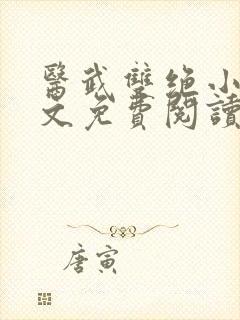 醫武雙絕小
文免費閱讀
唐寅